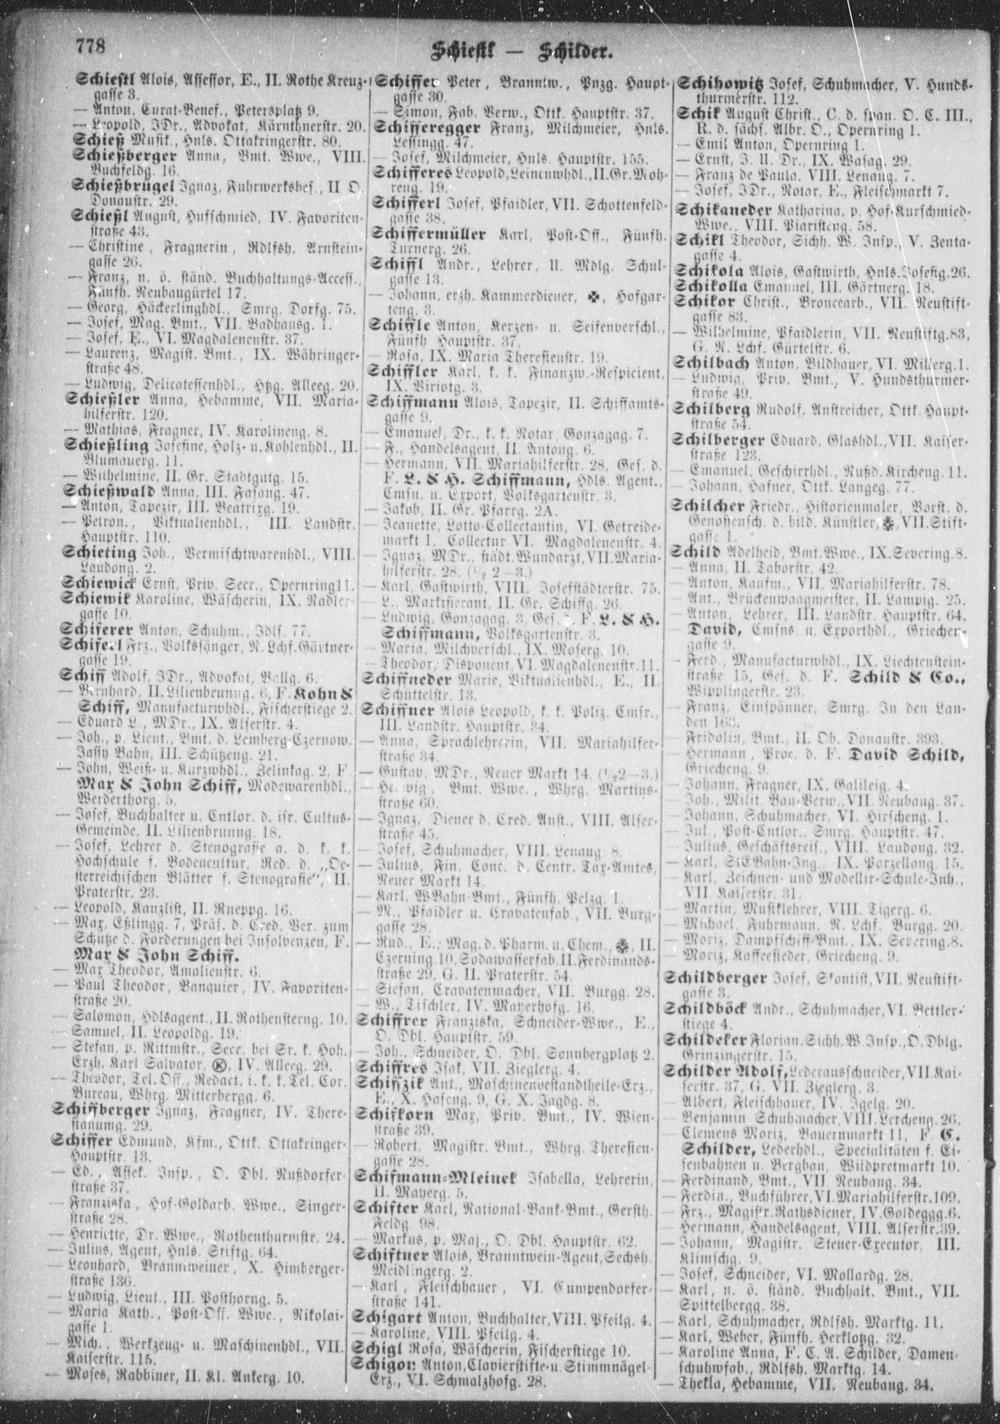 778
Schiestl — Schilder.
Schiestl Alois, Assessor, E., II. Rothe Kreuz-
gasse 3.
— Anton, Curat-Benef., Petersplatz 9.
— Leopold, JDr., Advokat, Kärnthnerstr. 20.
Schieß Musik., Hnls. Ottakringerstr. 80.
Schießberger Anna, Bmt. Wwe., VIII.
Buchfeldg. 16.
Schießbrügel Ignaz, Fuhrwerksbes., II O.
Donaustr. 29.
Schießl August, Hufschmied, IV. Favoriten-
straße 43.
— Christine, Fragnerin, Rdlfsh. Arnstein-
gasse 26.
— Franz, n. ö. ständ. Buchhaltungs-Access.,
Fünfh. Neubaugürtel 17.
— Georg, Häckerlinghdl., Smrg. Dorfg. 75.
— Josef, Mag. Bmt., VII. Badhausg. 1.
— Josef, E., VI. Magdalenenstr. 37.
— Laurenz, Magist. Bmt., IX. Währinger-
straße 48.
— Ludwig, Delicatessenhdl., Htzg. Alleeg. 20.
Schießler Anna, Hebamme, VII. Maria-
hilferstr. 120.
— Mathias, Fragner, IV. Karolineng. 8.
Schießling Josefine, Holz- u. Kohlenhdl., II.
Blumauerg. 11.
— Wilhelmine, II. Gr. Stadtgutg. 15.
Schießwald Anna, III. Fasang. 47.
— Anton, Tapezir, III. Beatrixg. 19.
— Petron., Viktualienhdl., III. Landstr.
Hauptstr. 110.
Schieting Joh., Vermischtwarenhdl., VIII.
Laudong. 2.
Schiewick Ernst, Priv. Secr., Opernring 11.
Schiewik Karoline, Wäscherin, IX. Nadler-
gasse 10.
Schiferer Anton, Schuhm., Jdlf. 77.
Schiferl Frz., Volkssänger, N. Lchf. Gärtner-
gasse 19.
Schiff Adolf, JDr., Advokat, Wallg. 6.
— Bernhard, II. Lilienbrunng. 6, F. Kohn &
Schiff, Manufacturwhdl., Fischerstiege 2.
— Eduard L., MDr., IX. Alserstr. 4.
— Joh., p. Lieut., Bmt. d. Lemberg-Czernow.
Jassy Bahn, III. Schützeng. 21.
— John, Weiß- u. Kurzwhdl., Zelinkag. 2, F.
Max & John Schiff, Modewarenhdl.,
Werderthorg. 5.
— Josef, Buchhalter u. Cntlor. d. isr. Cultus-
Gemeinde, II. Lilienbrunng. 18.
— Josef, Lehrer d. Stenografie a. d. k. k.
Hochschule f. Bodencultur, Red. d. „Oe-
sterreichischen Blätter f. Stenografie“, II.
Praterstr. 23.
— Leopold, Kanzlist, II. Rueppg. 16.
— Max, Eßlingg. 7, Präs. d. Cred. Ver. zum
Schutze d. Forderungen bei Insolvenzen, F.
Max & John Schiff.
— Max Theodor, Amalienstr. 6.
— Paul Theodor, Banquier, IV. Favoriten-
straße 20.
— Salomon, Hdlsagent., II. Rothensterng. 10.
— Samuel, II. Leopoldg. 19.
— Stefan, p. Rittmstr., Secr. bei Sr. k. Hoh.
Erzh. Karl Salvator, IV. Alleeg. 29.
— Theodor, Tel. Off., Redact. i. k. k. Tel. Cor.
Bureau, Whrg. Mitterbergg. 6.
Schiffberger Ignaz, Fragner, IV. There-
sianumg. 29.
Schiffer Edmund, Kfm., Ottk. Ottakringer-
Hauptstr. 13.
— Ed., Assek. Insp., O. Dbl. Nußdorfer-
straße 37.
— Franziska, Hof-Goldarb. Wwe., Singer-
straße 28.
— Henriette, Dr. Wwe., Rothenthurmstr. 24.
— Julius, Agent, Hnls. Stiftg. 64.
— Leonhard, Branntweiner, X. Himberger-
straße 136.
— Ludwig, Lieut., III. Posthorng. 5.
— Maria Kath., Post-Off. Wwe., Nikolai-
gasse 1.
— Mich., Werkzeug- u. Maschinenhdl., VII.
Kaiserstr. 115.
— Moses, Rabbiner, II. Kl. Ankerg. 10.
Schiffer Peter, Branntw., Pnzg. Haupt-
gasse 30.
— Simon, Fab. Verw., Ottk. Hauptstr. 37.
Schifferegger Franz, Milchmeier, Hnls.
Lessingg. 47.
— Josef, Milchmeier, Hnls. Hauptstr. 155.
Schifferes Leopold, Leinenwhdl., II. Gr. Moh-
reng. 19.
Schifferl Josef, Pfaidler, VII. Schottenfeld-
gasse 38.
Schiffermüller Karl, Post-Off., Fünfh.
Turnerg. 26.
Schiffl Andr., Lehrer, U. Mdlg. Schul-
gasse 13.
— Johann, erzh. Kammerdiener, Hofgar-
teng. 3.
Schiffle Anton, Kerzen- u. Seifenverschl.,
Fünfh. Hauptstr. 37.
— Rosa, IX. Maria Theresienstr. 19.
Schiffler Karl, k. k. Finanzw.-Respicient,
IX. Viriotg. 3.
Schiffmann Alois, Tapezir, II. Schiffamts-
gasse 9.
— Emanuel, Dr., k. k. Notar, Gonzagag. 7.
— F., Handelsagent, II. Antong. 6.
— Hermann, VII. Mariahilferstr. 28, Ges. d.
F. L. & H. Schiffmann, Hdls. Agent.,
Cmsn. u. Export, Volksgartenstr. 3.
— Jakob, II. Gr. Pfarrg. 2A.
— Jeanette, Lotto-Collectantin, VI. Getreide-
markt 1, Collectur VI. Magdalenenstr. 4.
— Ignaz, MDr., städt. Wundarzt, VII. Maria-
hilferstr. 28. (½ 2—3.)
— Karl, Gastwirth, VIII. Josefstädterstr. 75.
— L., Marktfierant, II. Gr. Schiffg. 26.
— Ludwig, Gonzagag. 3, Ges. F. L. & H.
Schiffmann, Volksgartenstr. 3.
— Maria, Milchverschl., IX. Moserg. 10.
— Theodor, Disponent, VI. Magdalenenstr. 11.
Schiffneder Marie, Viktualienhdl., E., II.
Schüttelstr. 13.
Schiffner Alois Leopold, k. k. Poliz. Cmsr.,
III. Landstr. Hauptstr. 34.
— Anna, Sprachlehrerin, VII. Mariahilfer-
straße 34.
— Gustav, MDr., Neuer Markt 14. (½2—3.)
— Hedwig, Bmt. Wwe., Whrg. Martins-
straße 60.
— Ignaz, Diener d. Cred. Anst., VIII. Alser-
straße 45.
— Josef, Schuhmacher, VIII. Lenaug. 8.
— Julius, Fin. Conc. d. Centr. Tax-Amtes,
Neuer Markt 14.
— Karl, WBahn-Bmt., Fünfh. Pelzg. 1.
— M., Pfaidler u. Cravatenfab., VII. Burg-
gasse 28.
— Rud., E., Mag. d. Pharm. u. Chem., II.
Czerning. 10, Sodawasserfab. II. Ferdinands-
straße 29, G. II. Praterstr. 54.
— Stefan, Cravatenmacher, VII. Burgg. 28.
— W., Tischler, IV. Mayerhofg. 16.
Schiffrer Franziska, Schneider-Wwe., E.,
O. Dbl. Hauptstr. 59.
— Joh., Schneider, O. Dbl. Sonnbergplatz 2.
Schiffres Isak, VII. Zieglerg. 4.
Schiffzik Ant., Maschinenbestandtheile-Erz.,
E., X. Haseng. 9, G. X. Jagdg. 8.
Schifkorn Max, Priv. Bmt., IV. Wien-
straße 39.
— Robert, Magistr. Bmt., Whrg. Theresien-
gasse 28.
Schifmann-Mleinek Isabella, Lehrerin,
II. Mayerg. 5.
Schifter Karl, National-Bank-Bmt., Gersth.
Feldg. 98.
— Markus, p. Maj., O. Dbl. Hauptstr. 62.
Schiftner Alois, Branntwein-Agent, Sechsh.
Meidlingerg. 2.
— Karl, Fleischhauer, VI. Gumpendorfer-
straße 141.
Schigart Anton, Buchhalter, VIII. Pfeilg. 4.
— Karoline, VIII. Pfeilg. 4.
Schigl Rosa, Wäscherin, Fischerstiege 10.
Schigon Anton, Clavierstifte- u. Stimmnägel-
Erz., VI. Schmalzhofg. 28.
Schihowitz Josef, Schuhmacher, V. Hunds-
thurmerstr. 112.
Schik August Christ., C. d. span. O. C. III.,
R. d. sächs. Albr. O., Opernring 1.
— Emil Anton, Opernring 1.
— Ernst, J. U. Dr., IX. Wasag. 29.
— Franz de Paula, VIII. Lenaug. 7.
— Josef, JDr., Notar, E., Fleischmarkt 7.
Schikaneder Katharina, p. Hof-Kurschmied-
Wwe., VIII. Piaristeng. 58.
Schikl Theodor, Sichh. W. Insp., V. Zenta-
gasse 4.
Schikola Alois, Gastwirth, Hnls. Josefig. 26.
Schikolla Emanuel, III. Gärtnerg. 18.
Schikor Christ., Broncearb., VII. Neustift-
gasse 83.
— Wilhelmine, Pfaidlerin, VII. Neustiftg. 83,
G. N. Lchf. Gürtelstr. 6.
Schilbach Anton, Bildhauer, VI. Millerg. 1.
— Ludwig, Priv. Bmt., V. Hundsthurmer-
straße 49.
Schilberg Rudolf, Anstreicher, Ottk. Haupt-
straße 54.
Schilberger Eduard, Glashdl., VII. Kaiser-
straße 123.
— Emanuel, Geschirrhdl., Nußd. Kircheng. 11.
— Johann, Hafner, Ottk. Langeg. 77.
Schilcher Friedr., Historienmaler, Vorst. d.
Genossensch. d. bild. Künstler, VII. Stift-
gasse 1.
Schild Adelheid, Bmt. Wwe., IX. Severing. 8.
— Anna, II. Taborstr. 42.
— Anton, Kaufm., VII. Mariahilferstr. 78.
— Ant., Brückenwaagmeister, II. Lampig. 25.
— Anton, Lehrer, III. Landstr. Hauptstr. 64.
— David, Cmsns. u. Exporthdl., Griechen-
gasse 9.
— Ferd., Manufacturwhdl., IX. Liechtenstein-
straße 15, Ges. d. F. Schild & Co.,
Wipplingerstr. 23.
— Franz, Einspänner, Smrg. In den Lan-
den 163.
— Fridolin, Bmt., II. Ob. Donaustr. 393.
— Hermann, Proc. d. F. David Schild,
Griecheng. 9.
— Johann, Fragner, IX. Galileig. 4.
— Joh., Milit. Bau-Verw., VII. Neubaug. 37.
— Johann, Schuhmacher, VI. Hirscheng. 1.
— Jul., Post-Cntlor., Smrg. Hauptstr. 47.
— Julius, Geschäftsreis., VIII. Laudong. 32.
— Karl, StEBahn-Ing., IX. Porzellang. 15.
— Karl, Zeichnen- und Modellir-Schule-Inh.,
VII. Kaiserstr. 31.
— Martin, Musiklehrer, VIII. Tigerg. 6.
— Michael, Fuhrmann, N. Lchf. Burgg. 20.
— Moriz, Dampfschiff-Bmt., IX. Severing. 8.
— Moriz, Kaffeesieder, Griecheng. 9.
Schildberger Josef, Skontist, VII. Neustift-
gasse 3.
Schildböck Andr., Schuhmacher, VI. Bettler-
stiege 4.
Schildeker Florian, Sichh. W. Insp., O. Dblg.
Grinzingerstr. 15.
Schilder Adolf, Lederausschneider, VII. Kai-
serstr. 37, G. VII. Zieglerg. 3.
— Albert, Fleischhauer, IV. Igelg. 20.
— Benjamin, Schuhmacher, VIII. Lercheng. 26.
— Clemens Moriz, Bauernmarkt 11, F. C.
Schilder, Lederhdl., Specialitäten f. Ei-
senbahnen u. Bergbau, Wildpretmarkt 10.
— Ferdinand, Bmt., VII. Neubaug. 34.
— Ferdin., Buchführer, VI. Mariahilferstr. 109.
— Frz., Magistr. Rathsdiener, IV. Goldeggg. 6.
— Hermann, Handelsagent, VIII. Alserstr. 39.
— Johann, Magistr. Steuer-Executor, III.
Klimschg. 9.
— Josef, Schneider, VI. Mollardg. 28.
— Karl, n. ö. ständ. Buchhalt. Bmt., VII.
Spittelbergg. 38.
— Karl, Schuhmacher, Rdlfsh. Marktg. 11.
— Karl, Weber, Fünfh. Herklotzg. 32.
— Karoline Anna, F. C. A. Schilder, Damen-
schuhwfab., Rdlfsh. Marktg. 14.
— Thekla, Hebamme, VII. Neubaug. 34.